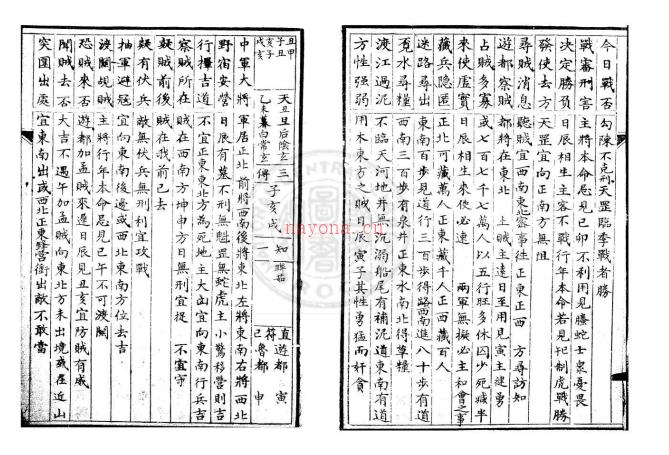 今日戰否 勾陳不克刑天罡臨季戰者勝
戰審刑害 主將本命忌見巳卯不利用見螣蛇士衆憂畏
決定勝負 日辰相生主客不戰行年本命若見制虎戰勝
發使去方 天罡宜向正南方無阻
尋賊消息 聽賊宜西南東北密事往東正西方尋訪知
遊都察賊 賊將在東北 土賊主逹日至用見寅主謎勇
占賊多寡 或七百七千七萬人以五行旺多休囚少死減半
來使虛實 日辰相生來使必速 兩軍無擬必主和會之事
藏兵隱匿 正北可藏萬人正東藏千人正西藏百人
迷路尋出 東南百步見道行三百步得路西南進八十步有道
覔水尋糧 西南三百步有泉井正東水南北得草糧
渡江過泥 不臨天河地井無沉溺船尾有補泥道東南有道
方性強弱 用木東方之賊日辰見寅子其性勇猛而奸貪
丑甲
子丑
亥子
戌亥
天丑旦后陰玄三子亥戌 知
乙未墓白常玄傳 一 二
直遊都 寅
符魯都 申
中軍大 將軍居正北前將西南後將東北左將東南右將西北
野宿安營 日辰有墓不刑無魁罡無蛇虎主小驚移營則吉
行擇吉道 不宜正東東北方為死地主大凶宜向東南行兵吉
察賊所在 賊在西南方坤申方日無刑宜捉 不宜守
疑賊前後 賊在我前已去
疑有伏兵 敵無伏兵無刑利宜攻戰
抽軍避冦 宜向東南後邊或西北東南方位去吉
渡關覘賊 主將行年本命忌見巳午不可渡關
恐賊來否 遊都加孟賊來遲日辰見丑亥宜防賊有威
聞賊去否 大吉不遇午加孟賊向東北方未出境或在近山
突圍出處 宜東南出或西北正東發營衝出敵不敢當
nayona.cn